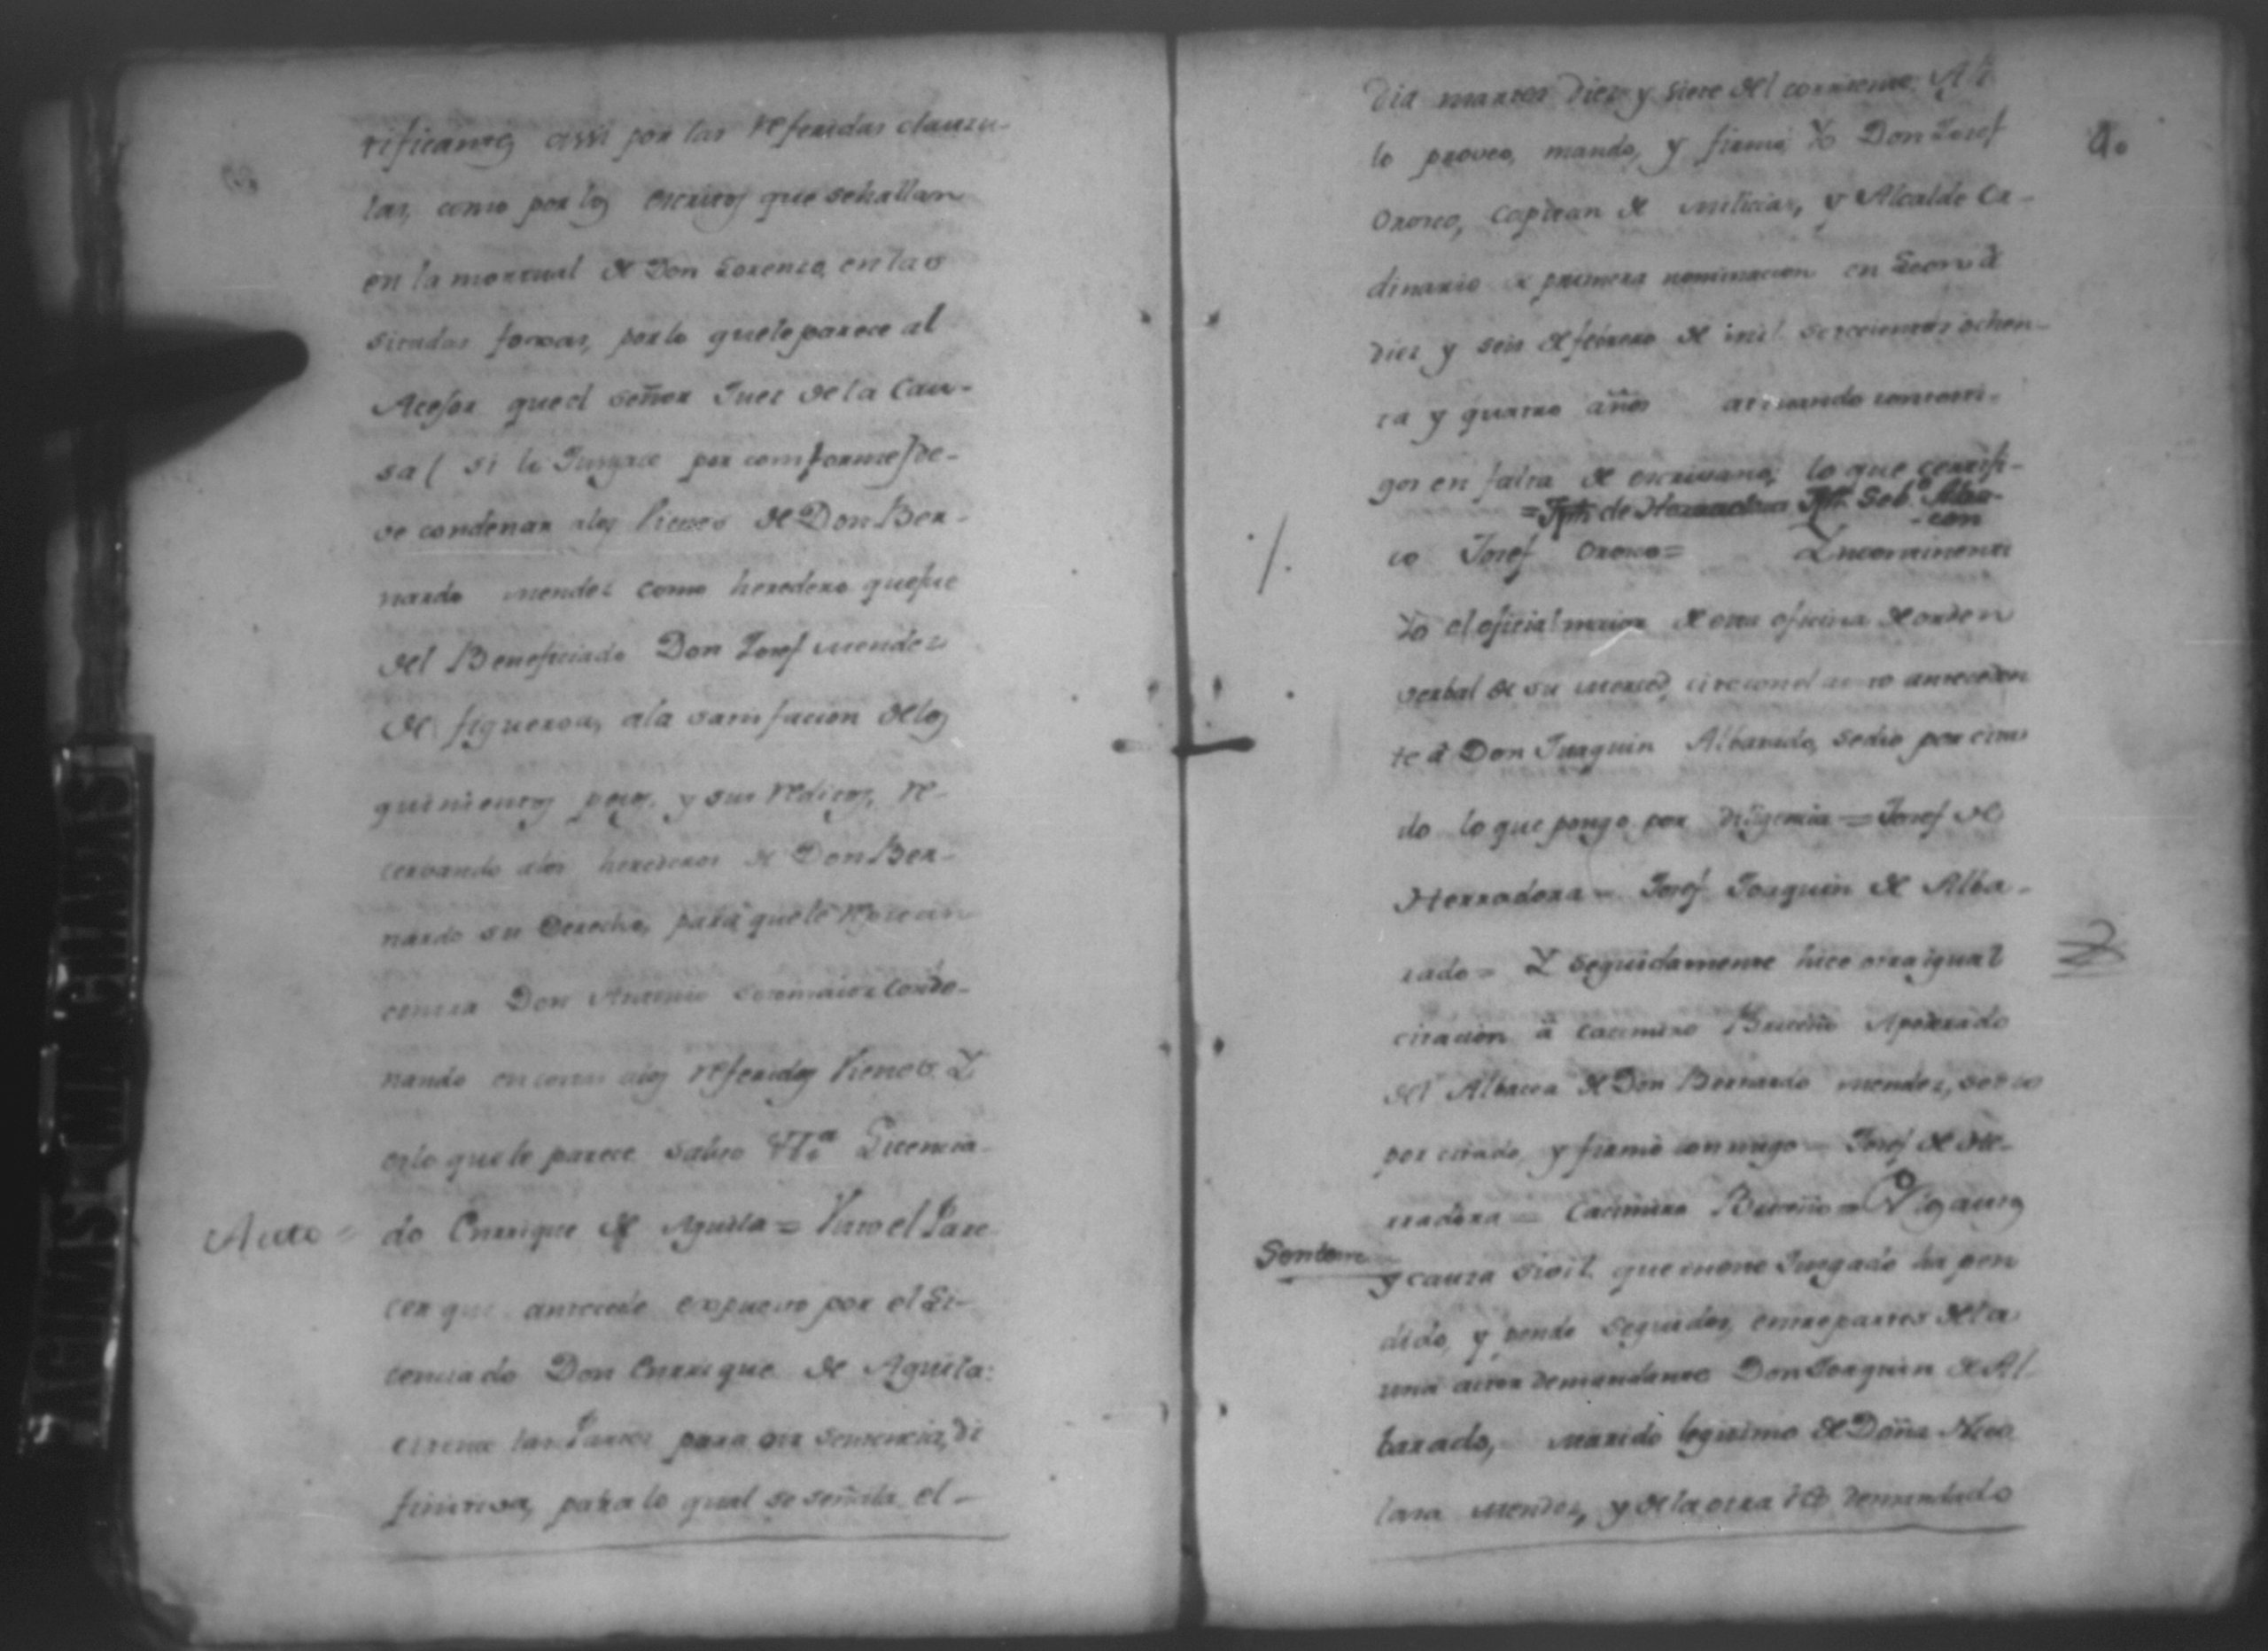 tificantes assi por las referidas clauzu-
las, como por los escritos que sehallan
en la mortual de Don Lorenzo, en las
sitadas foxas, porlo quele parece al
Acesor queel señor Juez de la Cau-
sa ( si lo Jusgare por comforme) de-
ve condenar alos Vienes de Don Ber-
nardo Mendez como heredero quefue
del Beneficiado Don Josef Mendez
de figueroa, ala satisfacion delos
quinientos pesos, y sus reditos, re-
cervando alos herederos de Don Ber-
nardo su Derecho, para quele
contra Don Antonio conde-
nando en costas alos referidos Vienes. Y
esto quele parece salvo Vta Licencia-
Auto =
do Enrrique de Aguila = Visto el Pare-
cer que antecede expuesto por el Li-
cenciado Don Enrrique de Aguila:
citense las Partes para oir sentencia, di
finitiva, para lo qual se señala el -
dia martes diez y siete del corriente. Assi
lo proveo, mando, y firmo Yo Don Josef
Orosco, Capitan de Milicias, y Alcalde Or-
dinario de primera nominacion en Leon a
diez y seis de febrero de mil setecientos ochen-
ta y quatro años actuando contesti-
gos en falta de escrivano, lo que certifi-
= Jph de Herradora Jph Seb.º Alar-
-con
co Josef Orosco = Yncontinenti
Yo el oficial maior de esta oficina de orden
verbal de su Merced, cite con el auto anteceden
te á Don Juaquin Albarado, sedio por cita-
do lo que pongo por diligencia = Josef de
Herradora = Josef Joaquin de Alba-
rado = Y seguidamente hice otra igual
citacion á Cacimiro Briceño Apoderado
del Albacea de Don Bernardo Mendez, se dio
por citado, y firmó conmigo = Josef de He-
rradora = Cacimiro Briceño = Vistos autos
Senten
y cauza Sivil que enesse Jusgado ha pen
dido, y pende seguidos, entrepartes dela
una actor demandante Don Joaquin de Al-
barado, marido legitimo de Doña Nico
lasa Mendez, y dela otra reo demandado